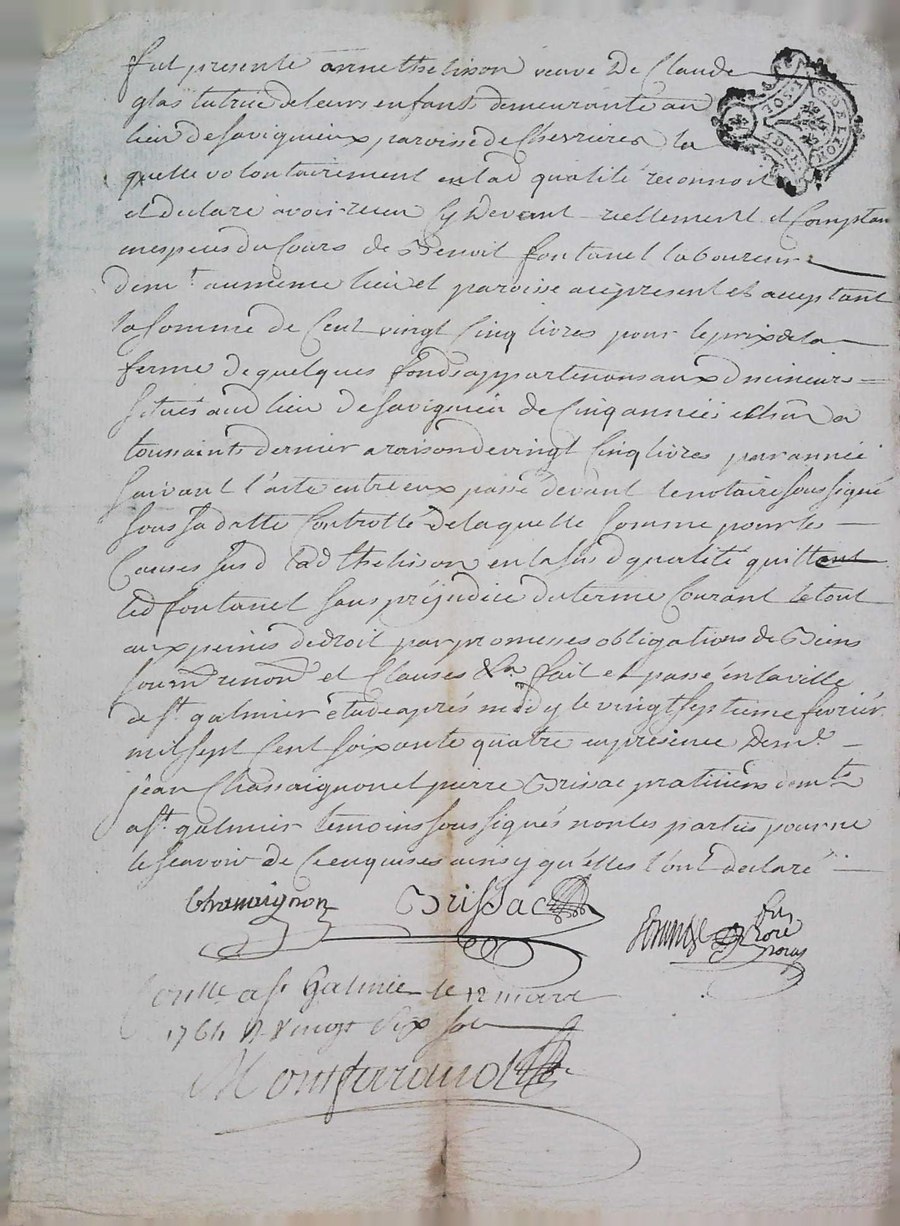 fut presente anne thelisson veuve De Claude
glas tutrice de leurs enfants demeurante au
lieu de savignieux paroisse de Chevrieres la
quelle volontairement en lad qualité reconnoit
et declare avoir receu cy Devant reellement et Comptan
en especes du Cours de Benoit fontanel laboureur
demt. au meme lieu et paroisse acepresent et acceptant
la Somme de Cent vingt Cinq livres pour le prix de la
ferme de quelques fonds appartenans aux d mineurs
situés aud lieu De savignieu de Cinq années echûes a
toussaints dernier a raison de vingt Cinq livres par année
suivant l'acte entre eux passé devant le notaire soussigné
sous sa datte Controllé De laquelle Somme pour les
Causes susd lad thelisson en la susd qualité quittent
led fontanel sans préjudice du terme Courant le tout
aux peines de droit par promesses obligations de Biens
soumn renonn et Clauses &a. fait et passé en la ville
de st. galmier etude après midy le vingt septieme fevrier
mil sept Cent soixante quatre en presence De me.
jean Chassaignon et pierre Brissac praticiens demts
a st. galmier temoins soussignés non les parties pour ne
le scavoir de Ce enquises ainsy qu'elles l'ont declaré
Chassaignon Brissac
Conlle a st Galmier le 12 mars
1764 R vingt six sols
Montferrand
G. DE LYON
2. SOL
4. DEN.